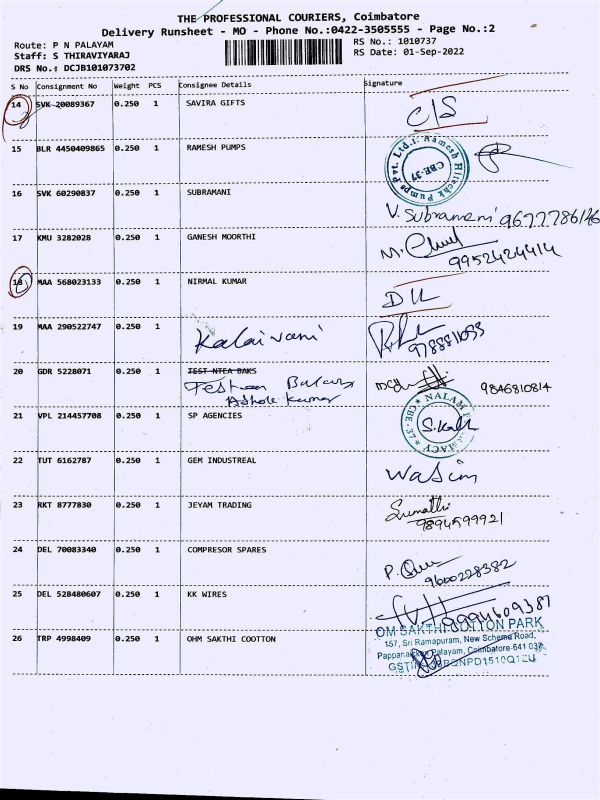 THE PROFESSIONAL COURIERS, Coimbatore
Delivery Runsheet - MO - Phone No.:0422-3505555 - Page No.:2
Route: P N PALAYAM RS No.: 1010737
Staff: S THIRAVIYARAJ RS Date: 01-Sep-2022
DRS No.: DCJB101073702
S No Consignment No Weight PCS Consignee Details Signature
14 SVK 20089367 0.250 1 SAVIRA GIFTS C/S
15 BLR 4450409865 0.250 1 RAMESH PUMPS
Ramesh Hitechk Pumps Pvt. Ltd. CBE-37
16 SVK 60290837 0.250 1 SUBRAMANI
V. Subramani 9677786146
17 KMU 3282028 0.250 1 GANESH MOORTHI
9952424414
18 MAA 568023133 0.250 1 NIRMAL KUMAR
D L
19 MAA 290522747 0.250 1 Kalaivani
9788811033
20 GDR 5228071 0.250 1 TEST NTEA BAKS
Ashok Kumar 9846810814
21 VPL 214457708 0.250 1 SP AGENCIES
NALAM PHARMACY CBE-37
22 TUT 6162787 0.250 1 GEM INDUSTREAL
Wasim
23 RKT 8777830 0.250 1 JEYAM TRADING
Sumathi
9894599921
24 DEL 70083340 0.250 1 COMPRESOR SPARES
9600228382
25 DEL 528480607 0.250 1 KK WIRES
9994609387
26 TRP 4998409 0.250 1 OHM SAKTHI COOTTON
OM SAKTHI COTTON PARK
157, Sri Ramapuram, New Scheme Road,
Pappanaicken Palayam, Coimbatore-641 037.